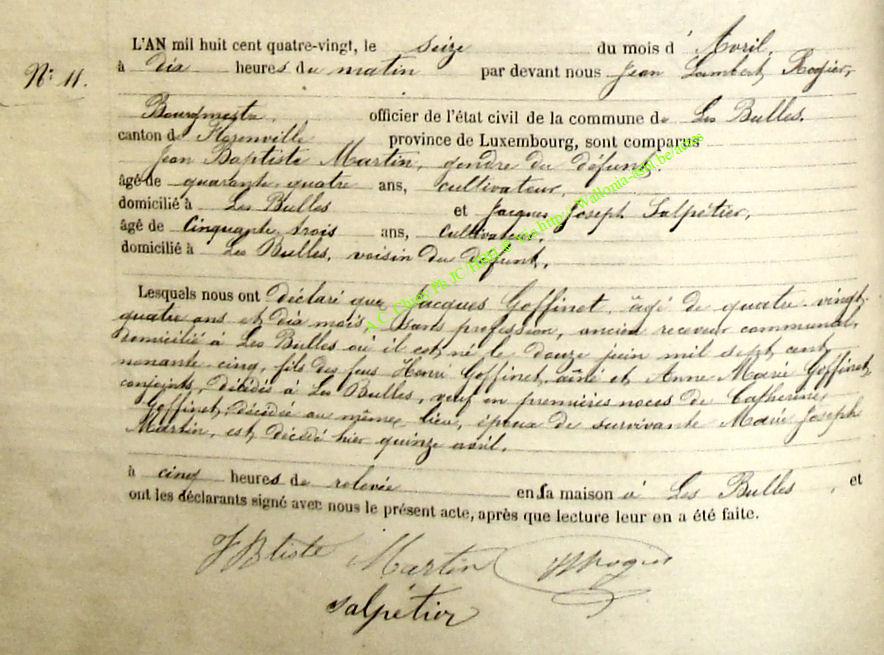 L'AN mil huit cent quatre-vingt, le seize du mois d' Avril,
N° 11. à dix heures du matin par devant nous Jean Lambert Rogier,
Bourgmestre, officier de l'état civil de la commune de Les Bulles.
canton de Florenville province de Luxembourg, sont comparus
Jean Baptiste Martin, gendre du défunt.
âgé de quarante quatre ans, cultivateur,
domicilié à Les Bulles et Jacques Joseph Salpétier,
âgé de Cinquante trois ans, cultivateur,
domicilié à Les Bulles, voisin du défunt,
Lesquels nous ont déclaré que Jacques Goffinet, âgé de quatre-vingt
quatre ans et dix mois, sans profession, ancien receveur communal,
domicilié à Les Bulles où il est né le douze juin mil sept cent
nonante cinq, fils des feus Henri Goffinet, aîné et Anne Marie Goffinet,
conjoints, décédés à Les Bulles, veuf en premières noces de Catherine
Goffinet, décédée au même lieu, époux de survivante Marie Joseph
Martin, est décédé hier quinze avril,
à cinq heures de relevée en sa maison à Les Bulles, et
ont les déclarants signé avec nous le présent acte, après que lecture leur en a été faite.
JBtiste Martin
Salpétier